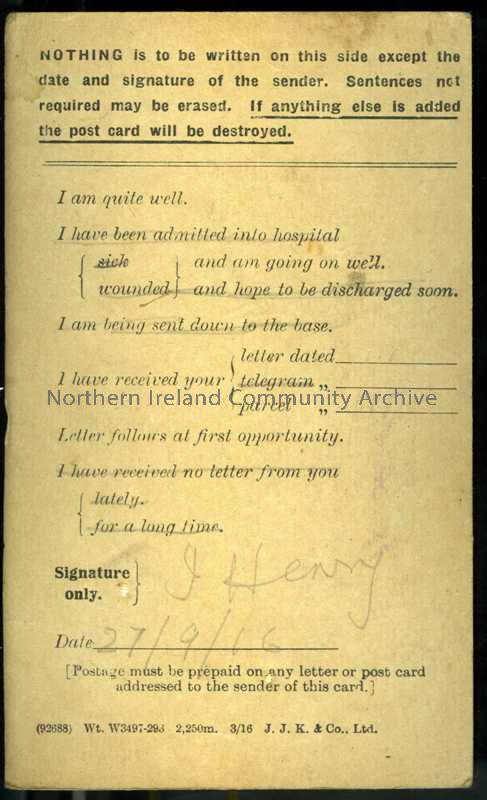 NOTHING is to be written on this side except the
date and signature of the sender. Sentences not
required may be erased. If anything else is added
the post card will be destroyed.
I am quite well.
I have been admitted into hospital
sick and am going on well.
wounded and hope to be discharged soon.
I am being sent down to the base.
letter dated
I have received your telegram „
parcel „
Northern Ireland Community Archive
Letter follows at first opportunity.
I have received no letter from you
lately.
for a long time.
Signature only. J Henry
Date 27/9/16
[Postage must be prepaid on any letter or post card
addressed to the sender of this card.]
(92688) Wt. W3497-293 2,250m. 3/16 J. J. K. & Co., Ltd.